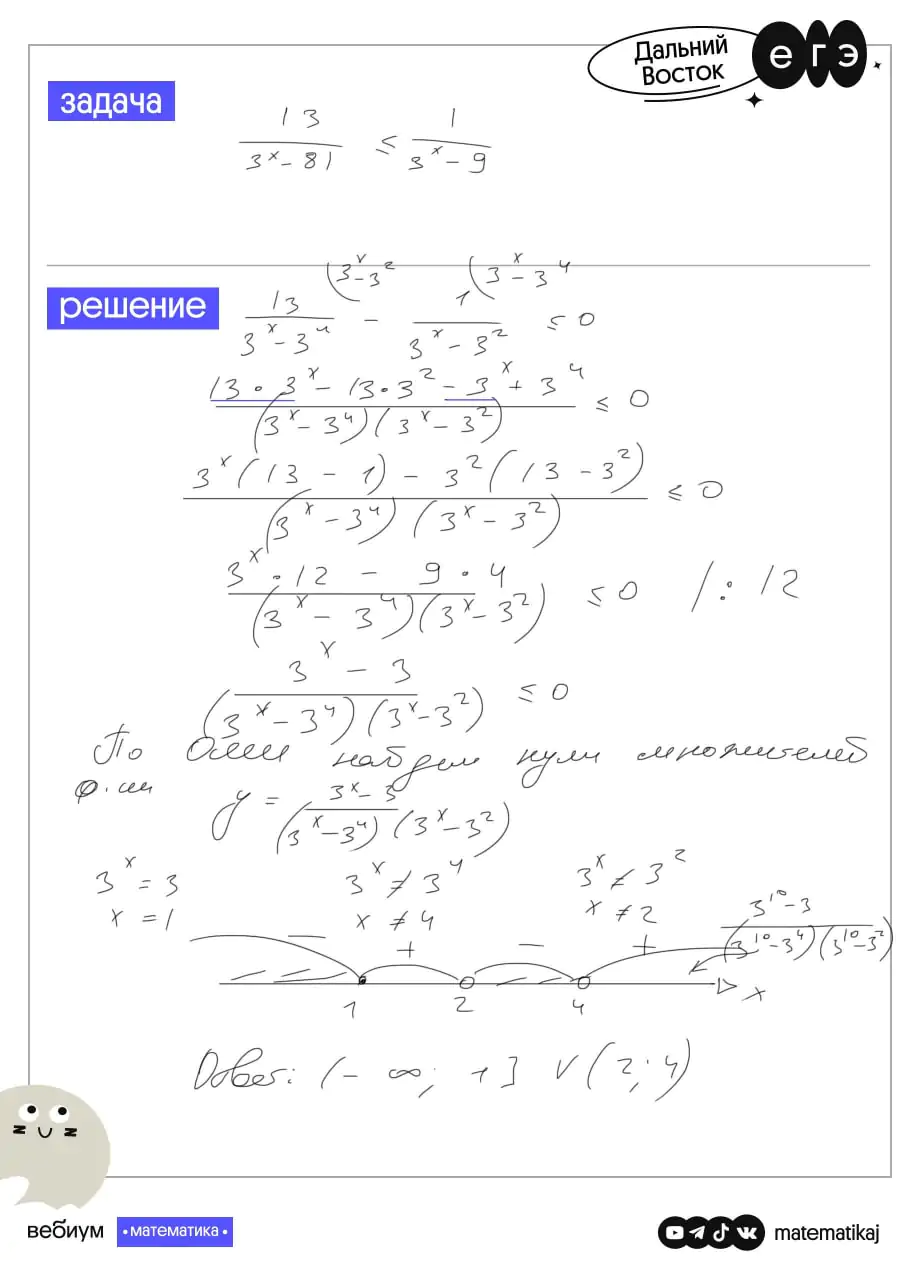 Дальний
Восток
егэ
задача
13/(3^x - 81) ≤ 1/(3^x - 9)
решение
13/(3^x - 3^4) (3^x - 3^2 - 1/(3^x - 3^2) (3^x - 3^4 ≤ 0
(13 · 3^x - 13 · 3^2 - 3^x + 3^4)/((3^x - 3^4)(3^x - 3^2)) ≤ 0
(3^x(13 - 1) - 3^2(13 - 3^2))/((3^x - 3^4)(3^x - 3^2)) ≤ 0
(3^x · 12 - 9 · 4)/((3^x - 3^4)(3^x - 3^2)) ≤ 0 /: 12
(3^x - 3)/((3^x - 3^4)(3^x - 3^2)) ≤ 0
По найдем нули множителей
ф-ии y = (3^x - 3)/((3^x - 3^4)(3^x - 3^2))
3^x = 3 3^x ≠ 3^4 3^x ≠ 3^2
x = 1 x ≠ 4 x ≠ 2
(3^10 - 3)/((3^10 - 3^4)(3^10 - 3^2))
− + − +
1 2 4 x
Ответ: (-∞; 1] ∨ (2; 4)
вебиум
• математика •
matematikaj